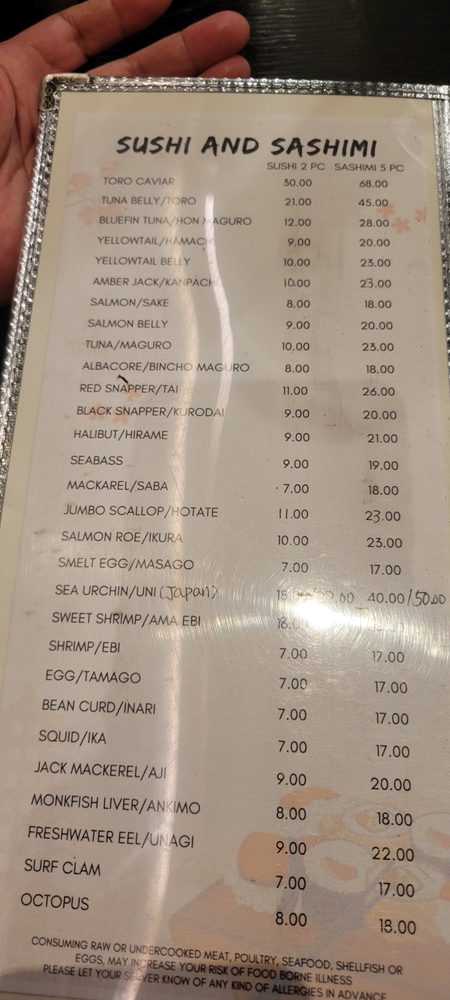 SUSHI AND SASHIMI
SUSHI 2 PC SASHIMI 5 PC
TORO CAVIAR 30.00 68.00
TUNA BELLY/TORO 21.00 45.00
BLUEFIN TUNA/HON MAGURO 12.00 28.00
YELLOWTAIL/HAMACHI 9.00 20.00
YELLOWTAIL BELLY 10.00 23.00
AMBER JACK/KANPACHI 10.00 23.00
SALMON/SAKE 8.00 18.00
SALMON BELLY 9.00 20.00
TUNA/MAGURO 10.00 23.00
ALBACORE/BINCHO MAGURO 8.00 18.00
RED SNAPPER/TAI 11.00 26.00
BLACK SNAPPER/KURODAI 9.00 20.00
HALIBUT/HIRAME 9.00 21.00
SEABASS 9.00 19.00
MACKAREL/SABA 7.00 18.00
JUMBO SCALLOP/HOTATE 11.00 23.00
SALMON ROE/IKURA 10.00 23.00
SMELT EGG/MASAGO 7.00 17.00
SEA URCHIN/UNI (Japan) 40.00/50.00
SWEET SHRIMP/AMA EBI 18.00
SHRIMP/EBI 7.00 17.00
EGG/TAMAGO 7.00 17.00
BEAN CURD/INARI 7.00 17.00
SQUID/IKA 7.00 17.00
JACK MACKEREL/AJI 9.00 20.00
MONKFISH LIVER/ANKIMO 8.00 18.00
FRESHWATER EEL/UNAGI 9.00 22.00
SURF CLAM 7.00 17.00
OCTOPUS 8.00 18.00
CONSUMING RAW OR UNDERCOOKED MEAT, POULTRY, SEAFOOD, SHELLFISH OR
EGGS, MAY INCREASE YOUR RISK OF FOOD BORNE ILLNESS
PLEASE LET YOUR SERVER KNOW OF ANY KIND OF ALLERGIES IN ADVANCE